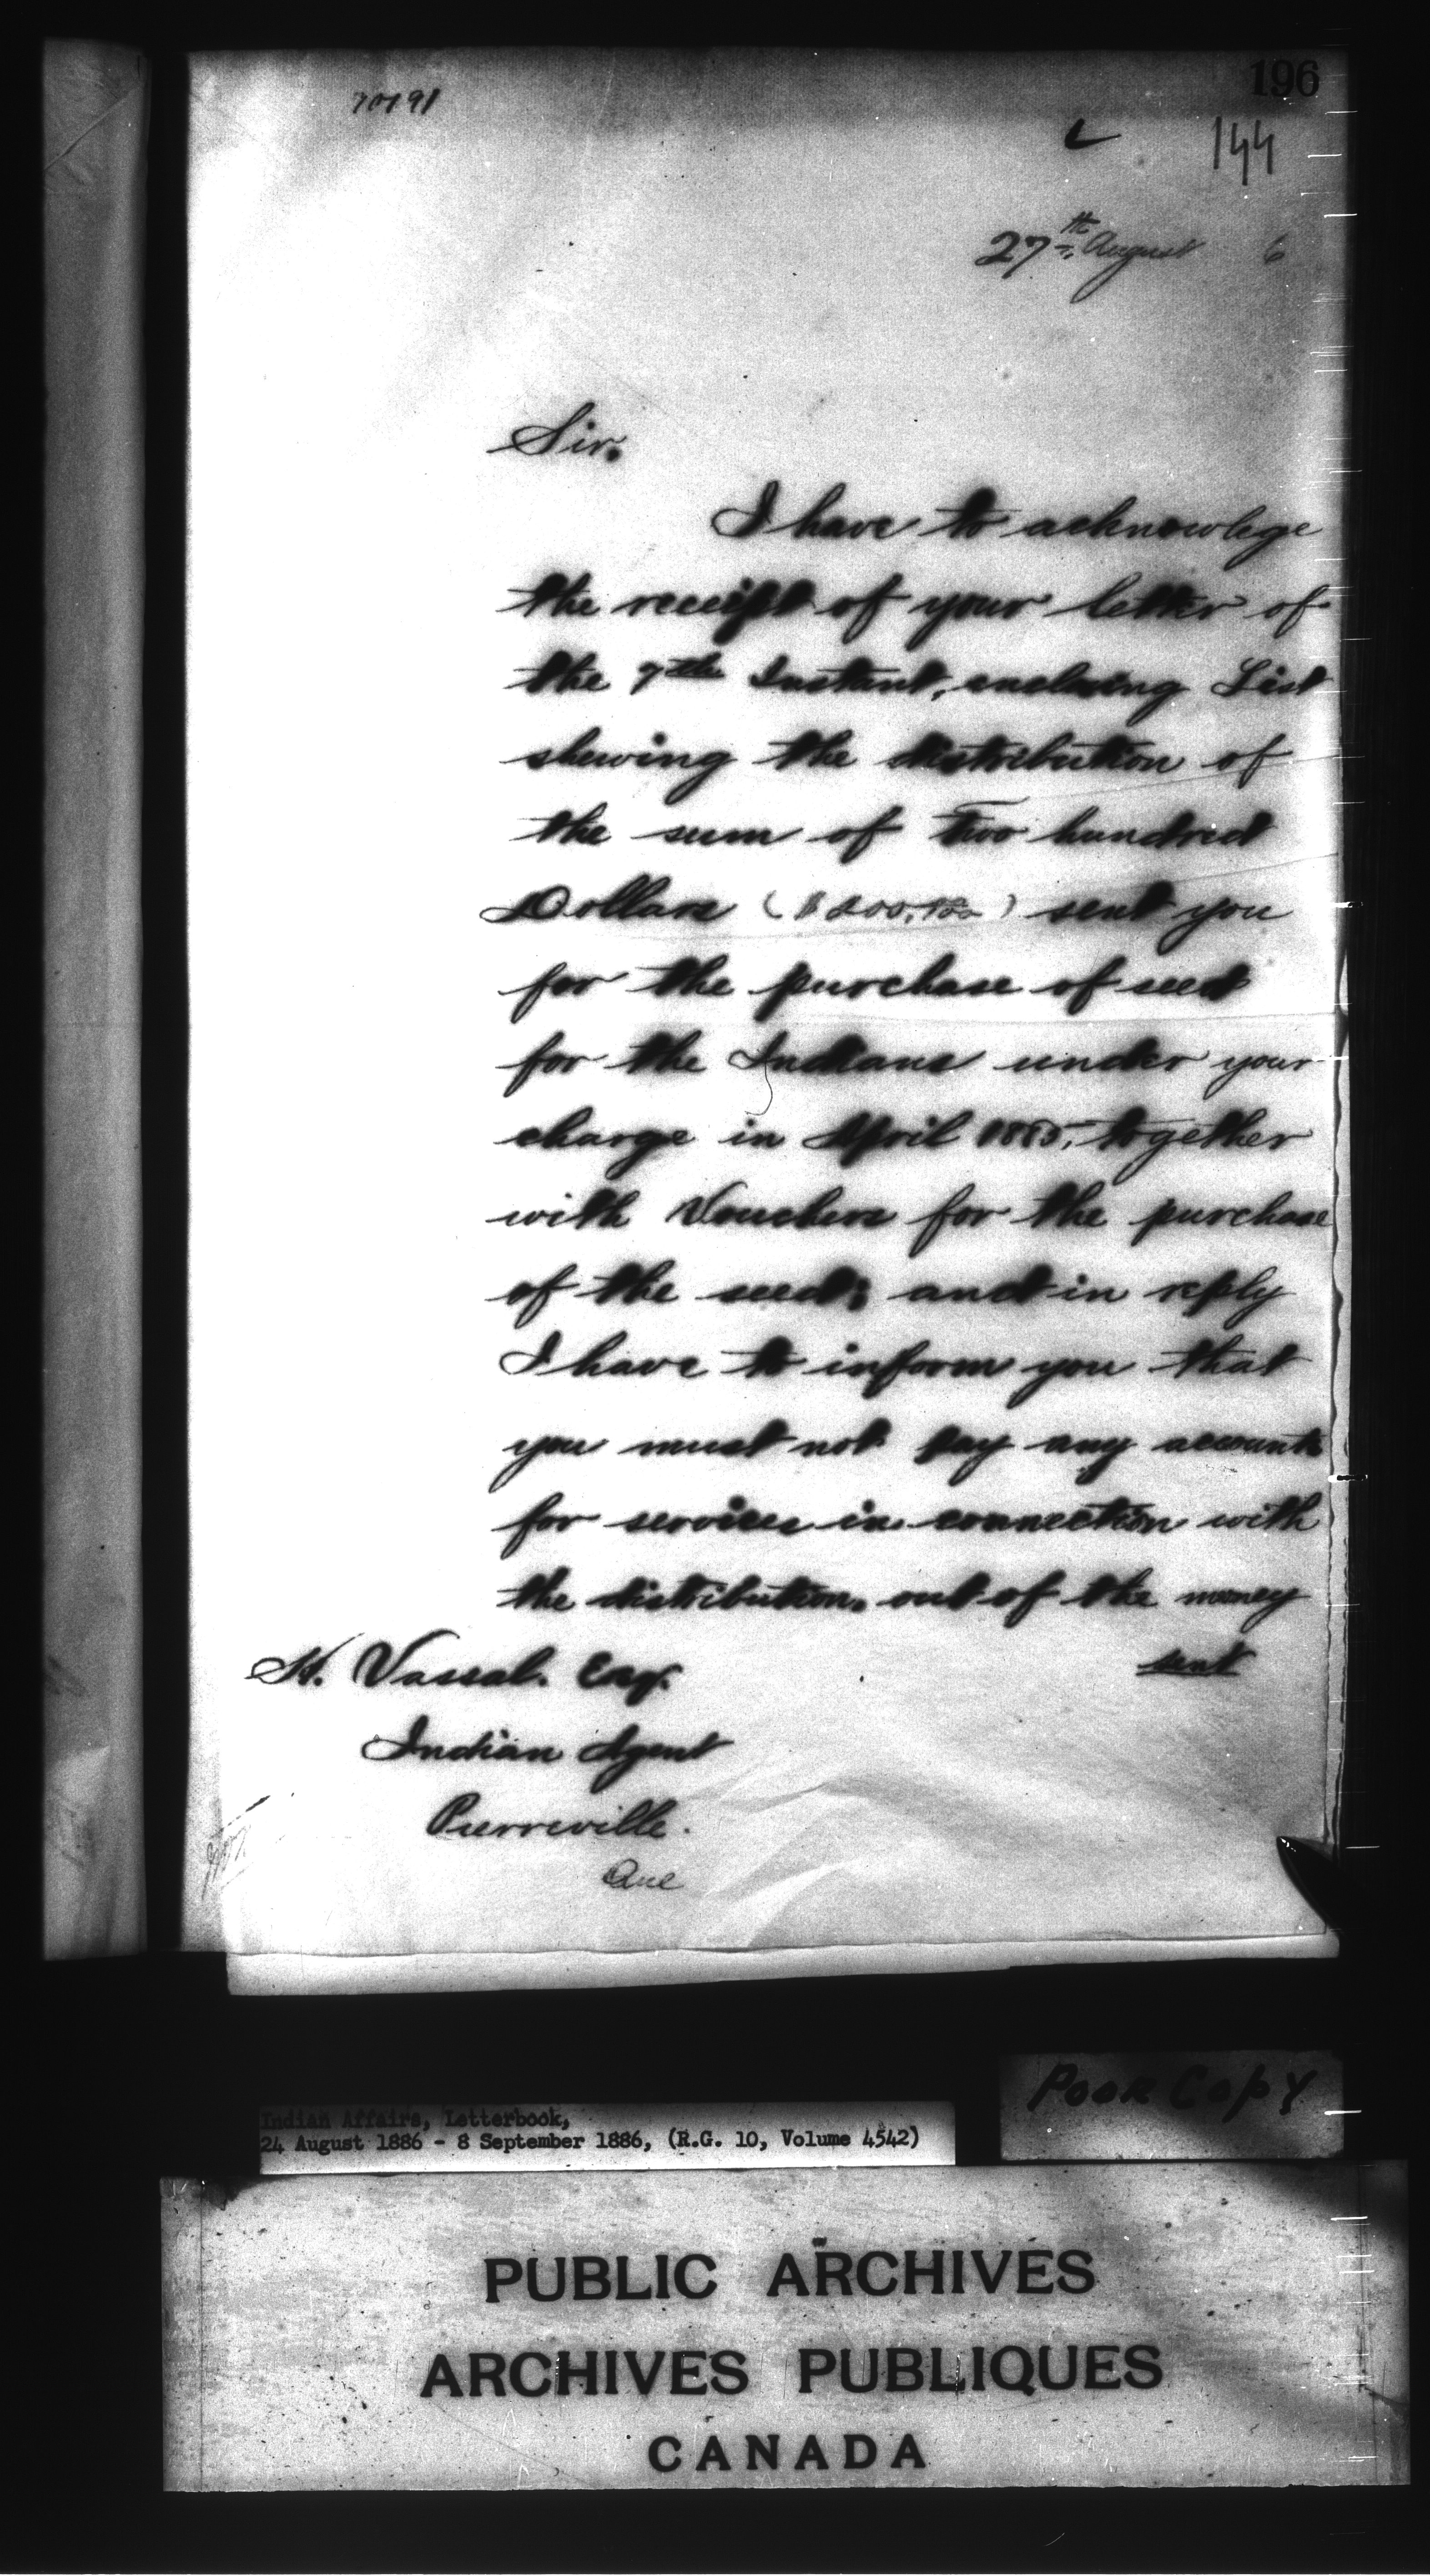 196
70191
144
27th August 6
Sir.
I have to acknowlege
the receipt of your letter of
the 7th Instant, enclosing List
shewing the distribution of
the sum of two hundred
Dollars ($200.00/100) sent you
for the purchase of seed
for the Indians under your
charge in April 1885, together
with Vouchers for the purchase
of the seed; and in reply
I have to inform you that
you must not pay any accounts
for services in connection with
the distribution, out of the money
sent
H. Vassal. Esq.
Indian Agent
Pierreville.
Que
POOR COPY
Indian Affairs, Letterbook,
24 August 1886 - 8 September 1886, (R.G. 10, Volume 4542)
PUBLIC ARCHIVES
ARCHIVES PUBLIQUES
CANADA